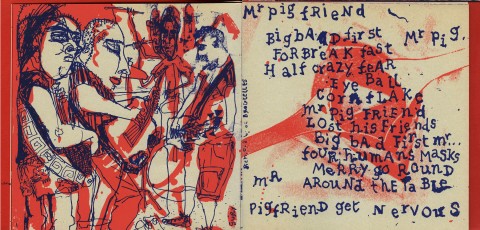 Mr pig friEnD
BigbAD first Mr Pig,
For BrEAK fast
Half crazy feAr
Eye BAll
CornflAKs
mr Pig FriEnD
Lost his friEnds
Big bAd First mr...
foUr humAns MAsks
MErrY go Round
mA AroUnd the TaBle
PigfriEnD get NErvoUS